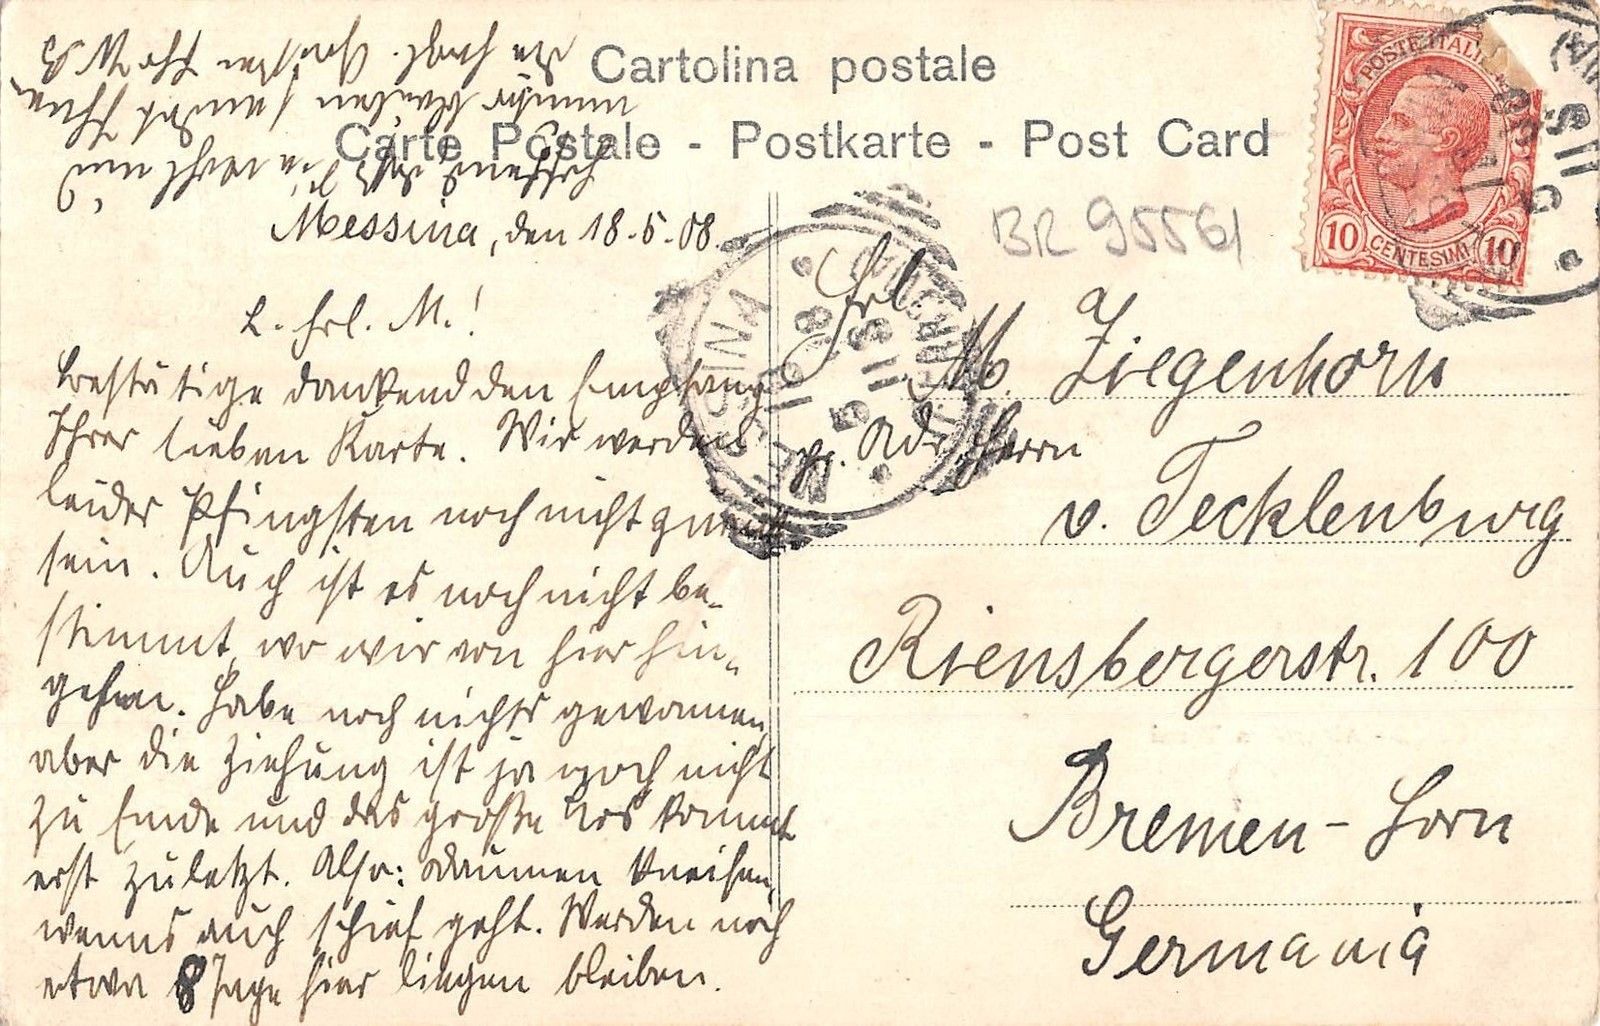 Cartolina postale
Carte Postale - Postkarte - Post Card
POSTE ITALIANE
10 CENTESIMI 10
BR 95561
Messina, den 18.5.08.
L. Frl. M.!
Bestätige dankend den Empfang
Ihrer lieben Karte. Wir werden
leider Pfingsten noch nicht zurück
sein. Auch ist es noch nicht be-
stimmt, wo wir von hier hin-
gehen. Habe noch nichts gewonnen,
aber die Ziehung ist ja noch nicht
zu Ende und das große Los kommt
erst zuletzt. Also: Daumen kneifen,
wenns auch schief geht. Werden noch
etwa 8 Tage hier liegen bleiben.
Frl.
M. Ziegenhorn
pr. Adr. Herrn
v. Tecklenburg
Riensbergerstr. 100
Bremen - Horn
Germania
MESSINA